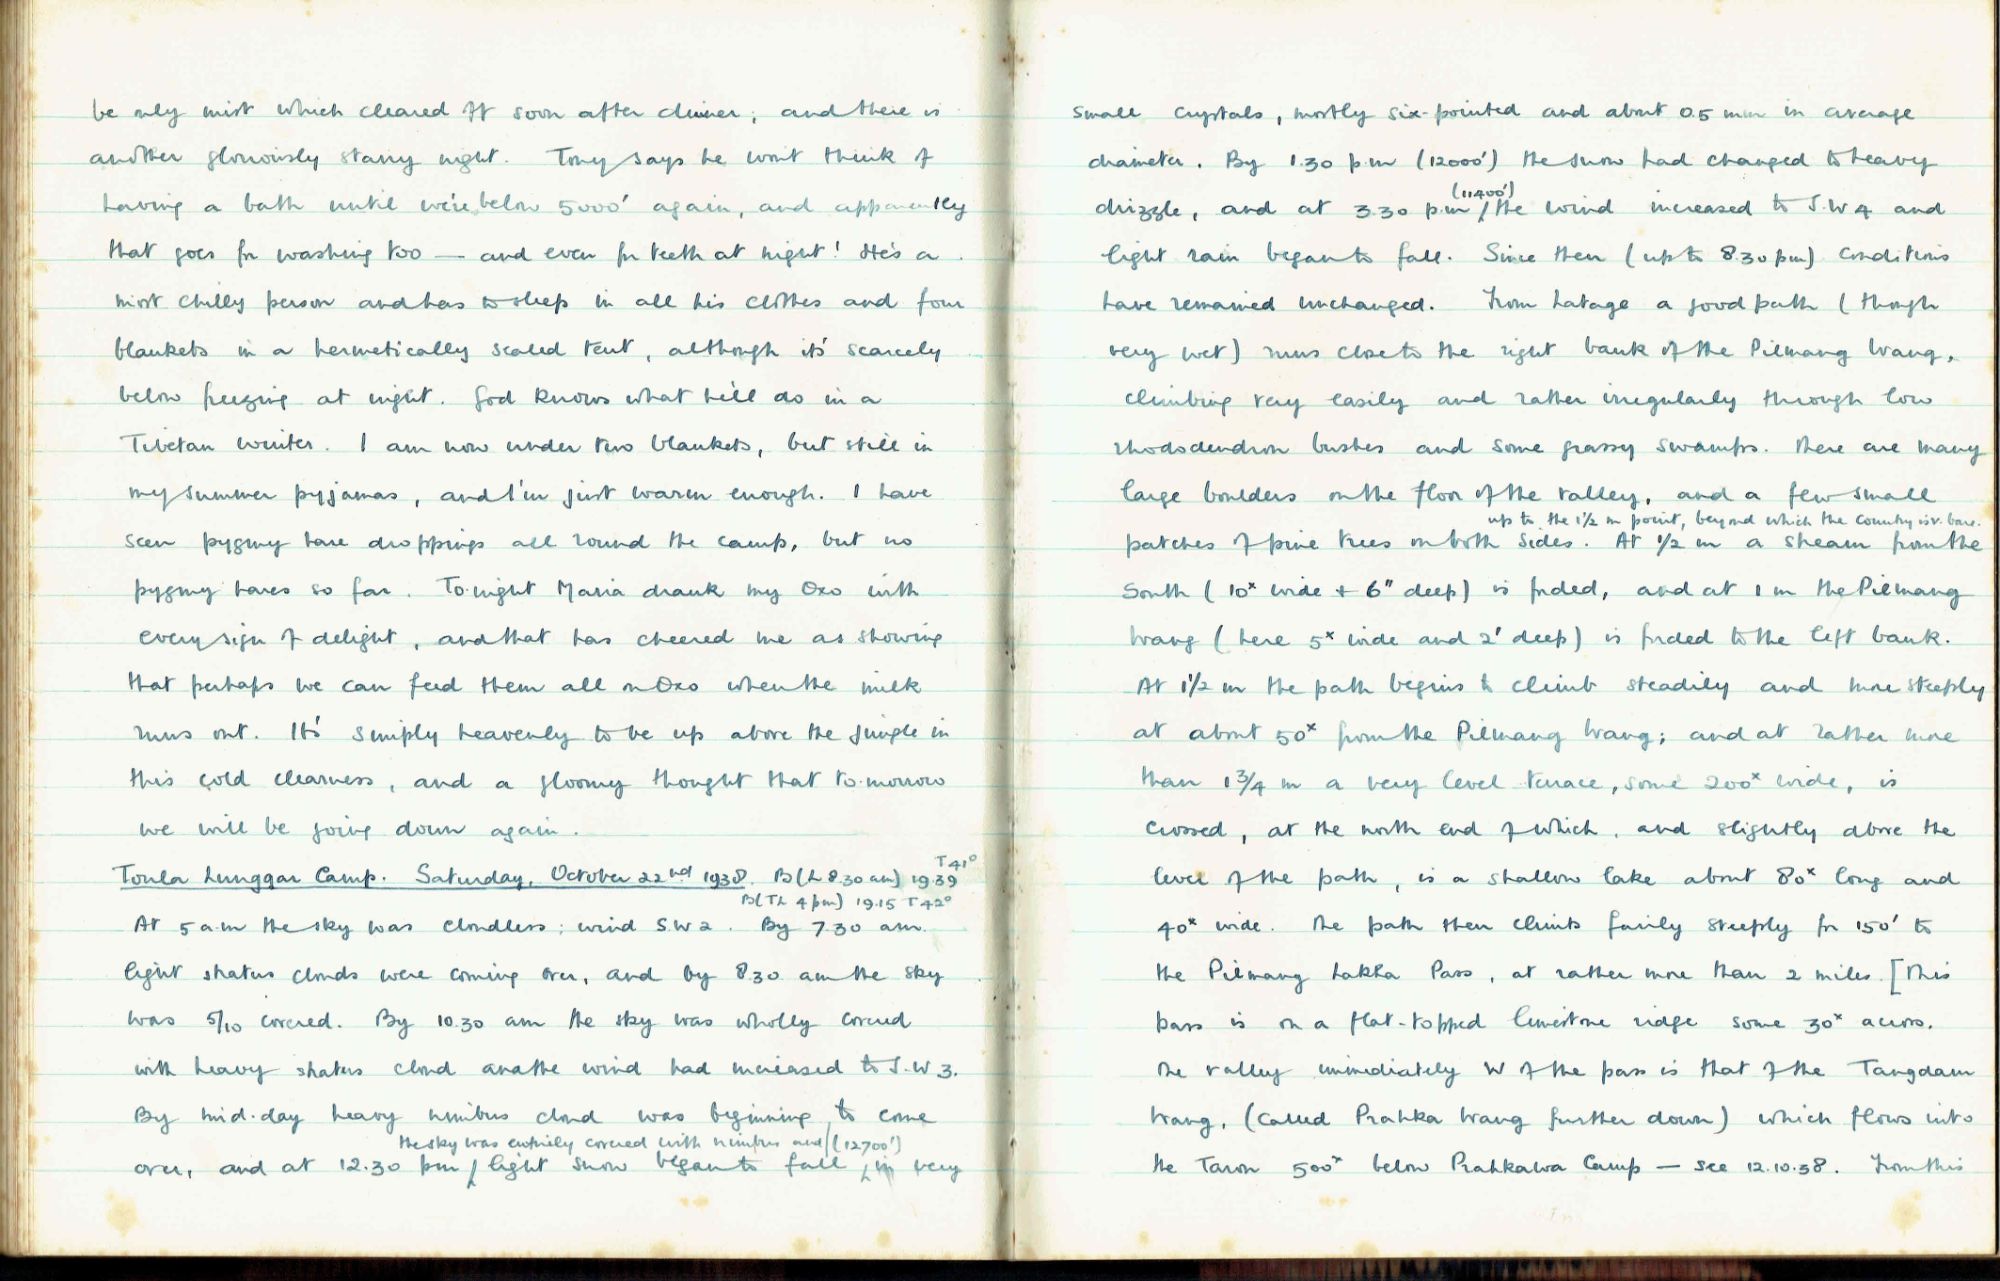 be only mist which cleared off soon after dinner; and there is
another gloriously starry night. Tony says he won't think of
having a bath until we're below 5000' again, and apparently
that goes for washing too — and even for teeth at night! He's a
most chilly person and has to sleep in all his clothes and four
blankets in a hermetically sealed tent, although it's scarcely
below freezing at night. God knows what he'll do in a
Tibetan winter. I am now under two blankets, but still in
my summer pyjamas, and I'm just warm enough. I have
seen pygmy hare droppings all round the camp, but no
pygmy hares so far. To-night Maria drank my Oxo with
every sign of delight, and that has cheered me as showing
that perhaps we can feed them all on Oxo when the milk
runs out. It's simply heavenly to be up above the jungle in
this cold clearness, and a gloomy thought that to-morrow
we will be going down again.
T 41°
Tonla Lunggar Camp. Saturday, October 22nd 1938. B (L 8.30 am) 19.39
B (TL 4 pm) 19.15 T 42°
At 5 a.m the sky was cloudless; wind S.W 2. By 7.30 am.
light stratus clouds were coming over, and by 8.30 am the sky
was 5/10 covered. By 10.30 am the sky was wholly covered
with heavy stratus cloud and the wind had increased to S.W 3.
By mid-day heavy nimbus cloud was beginning to come
the sky was entirely covered with nimbus and (12700')
over, and at 12.30 pm light snow began to fall, in very
small crystals, mostly six-pointed and about 0.5 mm in average
diameter. By 1.30 p.m (12000') the snow had changed to heavy
(11400')
drizzle, and at 3.30 p.m the wind increased to S.W 4 and
light rain began to fall. Since then (up to 8.30 pm) conditions
have remained unchanged. From Latage a good path (though
very wet) runs close to the right bank of the Pilmang Wang,
climbing very easily and rather irregularly through low
rhododendron bushes and some grassy swamps. There are many
large boulders on the floor of the valley, and a few small
up to the 1½ m point, beyond which the country is v. bare.
patches of pine trees on both sides. At ½ m a stream from the
South (10ˣ wide + 6" deep) is forded, and at 1 m the Pilmang
Wang (here 5ˣ wide and 2' deep) is forded to the left bank.
At 1½ m the path begins to climb steadily and more steeply
at about 50ˣ from the Pilmang Wang; and at rather more
than 1¾ m a very level terrace, some 200ˣ wide, is
crossed, at the north end of which, and slightly above the
level of the path, is a shallow lake about 80ˣ long and
40ˣ wide. The path then climbs fairly steeply for 150' to
the Pilmang Lakha Pass, at rather more than 2 miles. [This
pass is on a flat-topped limestone ridge some 30ˣ across.
The valley immediately W of the pass is that of the Tangdam
Wang, (called Prahka Wang further down) which flows into
the Taron 500ˣ below Prahkawa Camp — see 12.10.38. From this